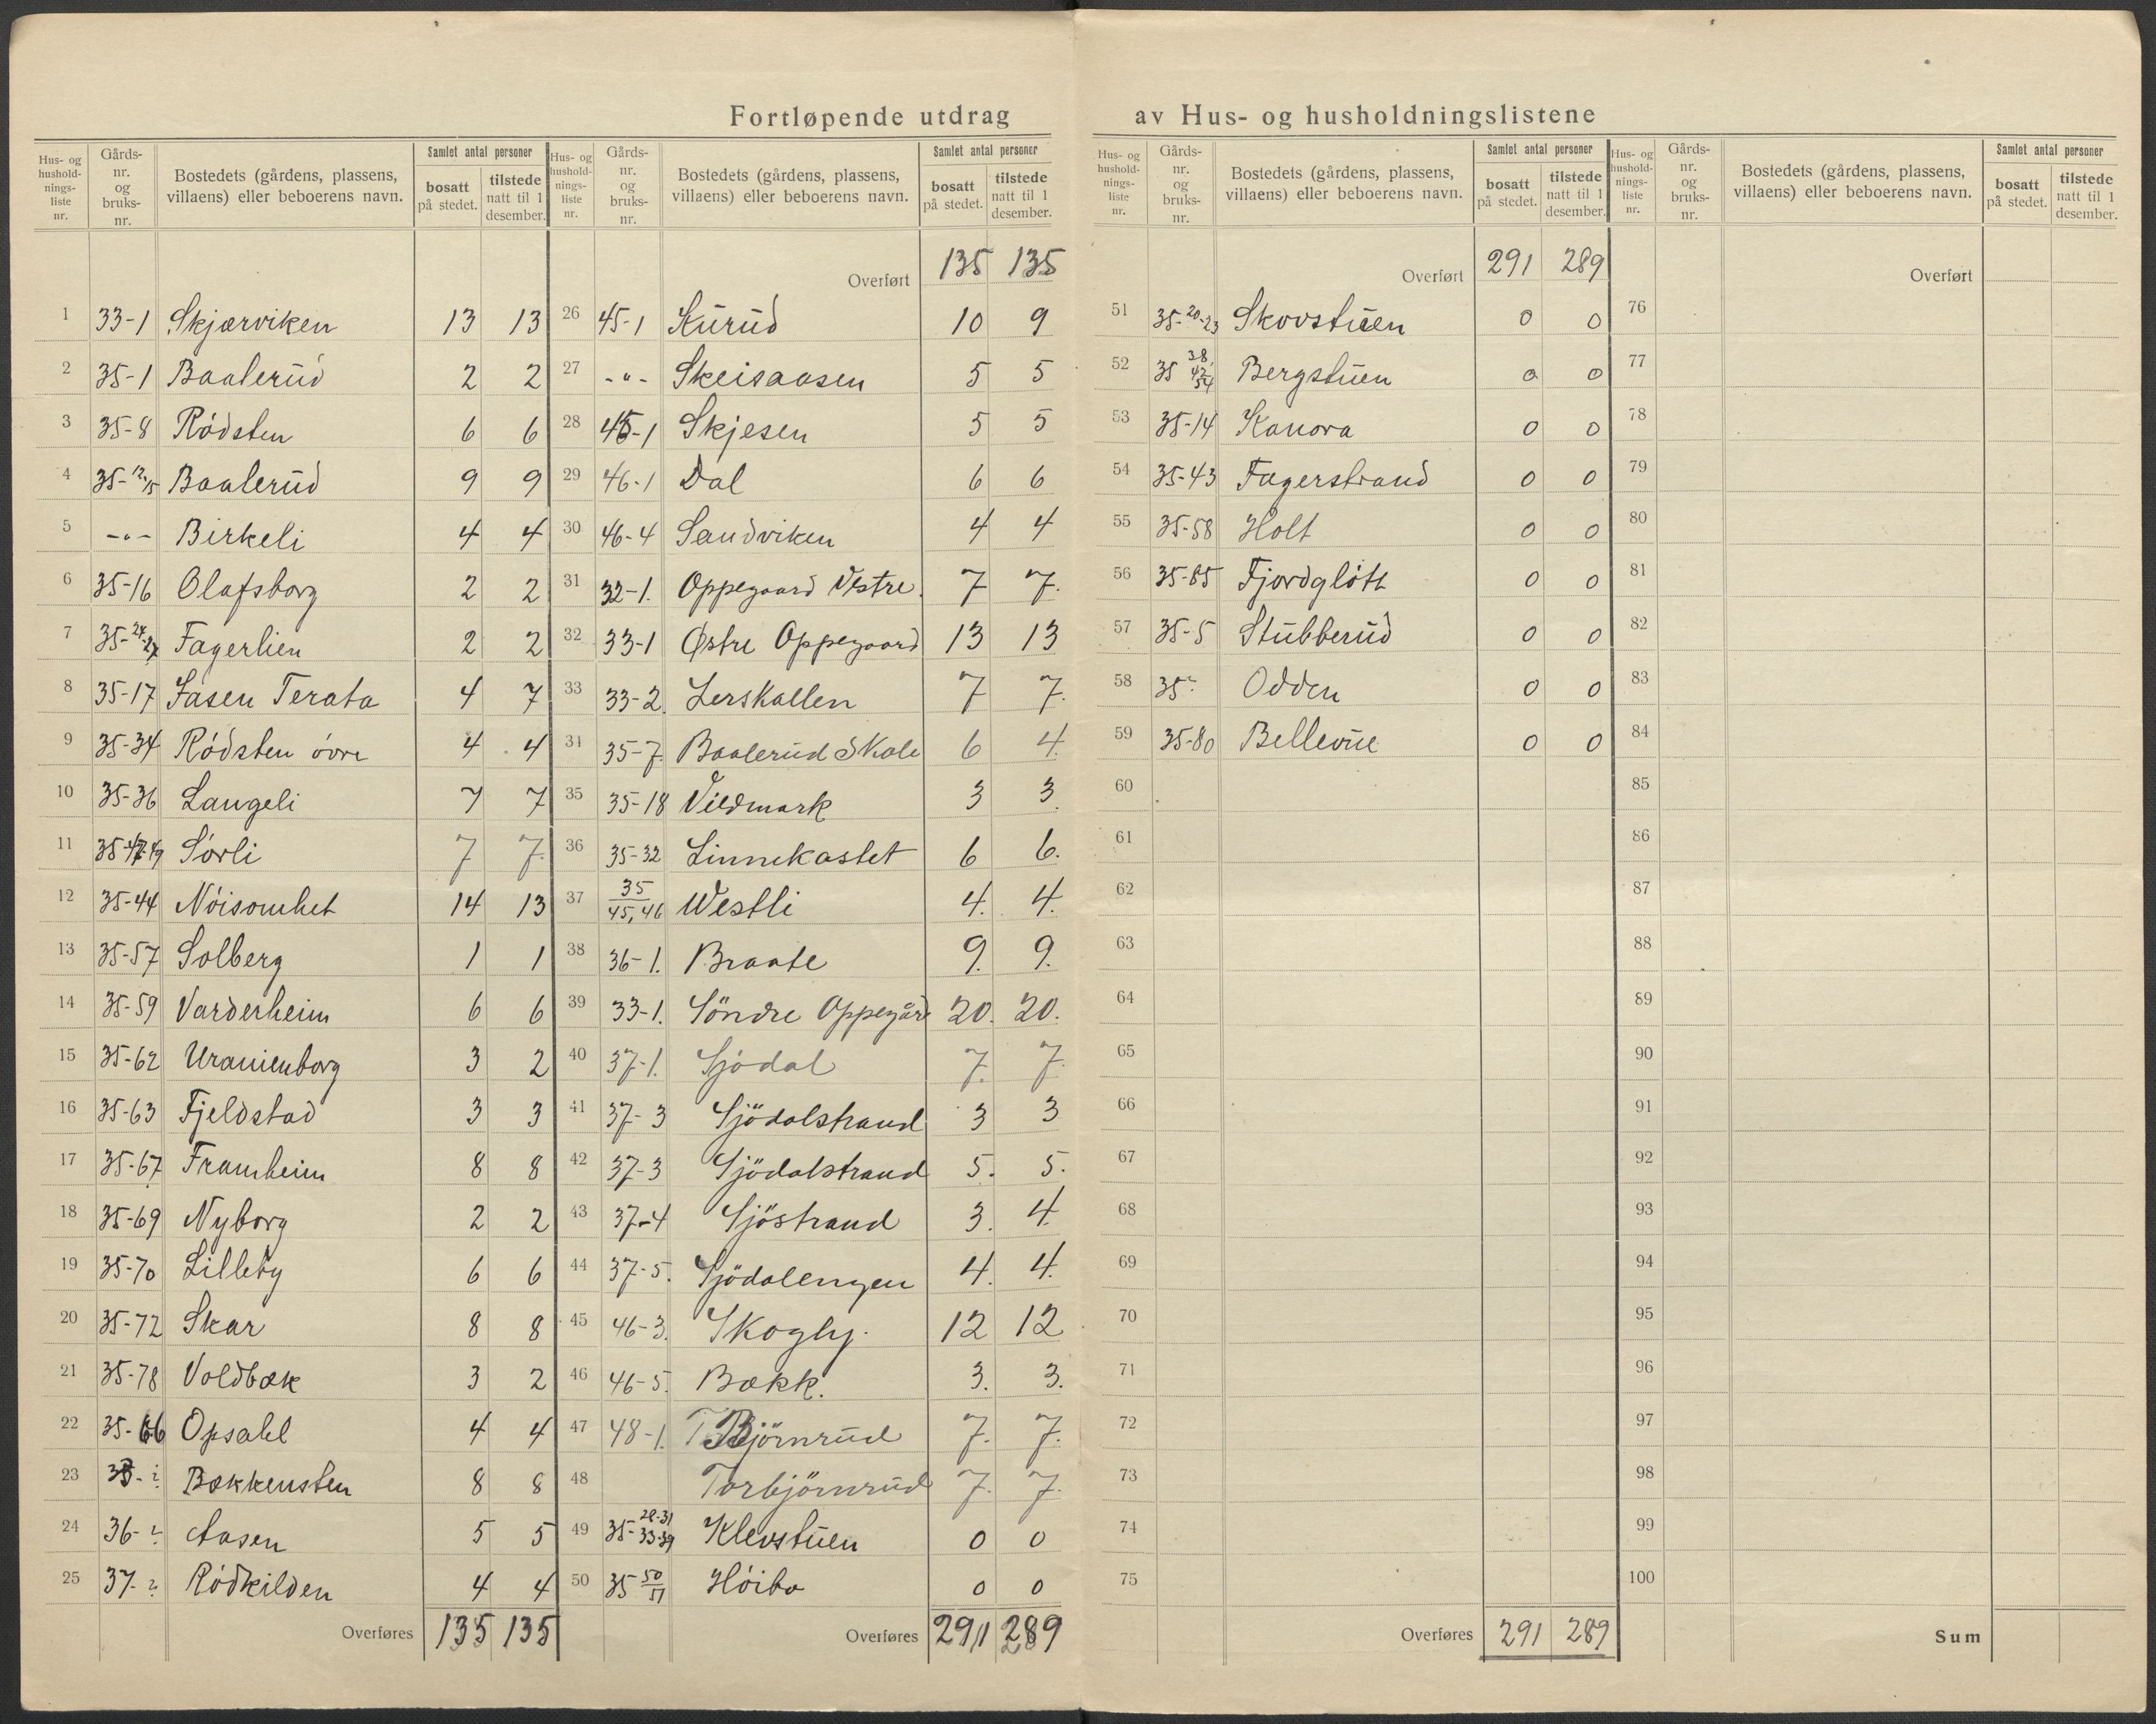 Fortløpende utdrag av Hus- og husholdningslistene
Hus- og husholdnings-liste nr. Gårds-nr. og bruks-nr. Bostedets (gårdens, plassens, villaens) eller beboerens navn. Samlet antal personer bosatt på stedet. tilstede natt til 1 desember.
1 33-1 Skjærviken 13 13
2 35-1 Baalerud 2 2
3 35-8 Rödsten 6 6
4 35-12,15 Baalerud 9 9
5 -"- Birkeli 4 4
6 35-16 Olafsborg 2 2
7 35-24-27 Fagerlien 2 2
8 35-17 Fasen Terata 4 7
9 35-34 Rödsten övre 4 4
10 35-36 Langeli 7 7
11 35-47-49 Sörli 7 7.
12 35-44 Nöisomhet 14 13
13 35-57 Solberg 1 1
14 35-59 Varderheim 6 6
15 35-62 Uranienborg 3 2
16 35-63 Fjeldstad 3 3
17 35-67 Framheim 8 8
18 35-69 Nyborg 2 2
19 35-70 Lilleby 6 6
20 35-72 Skar 8 8
21 35-78 Voldbæk 3 2
22 35-66 Opsahl 4 4
23 35-? Bækkensten 8 8
24 36-? Aasen 5 5
25 37-? Rödkilden 4 4
Overføres 135 135
Hus- og husholdnings-liste nr. Gårds-nr. og bruks-nr. Bostedets (gårdens, plassens, villaens) eller beboerens navn. Samlet antal personer bosatt på stedet. tilstede natt til 1 desember.
Overført 135 135
26 45-1 Kurud 10 9
27 -"- Skeisaasen 5 5
28 45-1 Skjesen 5 5
29 46-1 Dal 6 6
30 46-4 Sandviken 4 4
31 32-1. Oppegaard Vestre. 7 7.
32 33-1 Østre Oppegaard 13 13
33 33-2. Lerskallen 7 7.
34 35-7. Baalerud Skole 6 4.
35 35-18 Vildmark 3 3.
36 35-32 Linnekastet 6 6.
37 35/45,46 Westli 4. 4.
38 36-1. Braate 9. 9.
39 33-1. Söndre Oppegård 20. 20.
40 37-1. Sjödal 7. 7.
41 37-3 Sjödalstrand 3 3
42 37-3 Sjödalstrand 5. 5.
43 37-4 Sjöstrand 3. 4.
44 37-5. Sjödalengen 4. 4.
45 46-3. Skogly. 12 12
46 46-5. Bækk. 3. 3.
47 48-1. Björnrud 7. 7.
48 Torbjörnrud 7. 7.
49 35-28-31 33-39 Klevstuen 0 0
50 35 50/51 Höibo 0 0
Overføres 291 289
Hus- og husholdnings-liste nr. Gårds-nr. og bruks-nr. Bostedets (gårdens, plassens, villaens) eller beboerens navn. Samlet antal personer bosatt på stedet. tilstede natt til 1 desember.
Overført 291 289
51 35-20-23 Skovstuen 0 0
52 35 38, 42, 54 Bergstuen 0 0
53 35-14 Kanora 0 0
54 35-43 Fagerstrand 0 0
55 35-58 Holt 0 0
56 35-65 Fjordglött 0 0
57 35-5 Stubberud 0 0
58 35? Odden 0 0
59 35-80 Bellevue 0 0
60
61
62
63
64
65
66
67
68
69
70
71
72
73
74
75
Overføres 291 289
Hus- og husholdnings-liste nr. Gårds-nr. og bruks-nr. Bostedets (gårdens, plassens, villaens) eller beboerens navn. Samlet antal personer bosatt på stedet. tilstede natt til 1 desember.
Overført
76
77
78
79
80
81
82
83
84
85
86
87
88
89
90
91
92
93
94
95
96
97
98
99
100
Sum